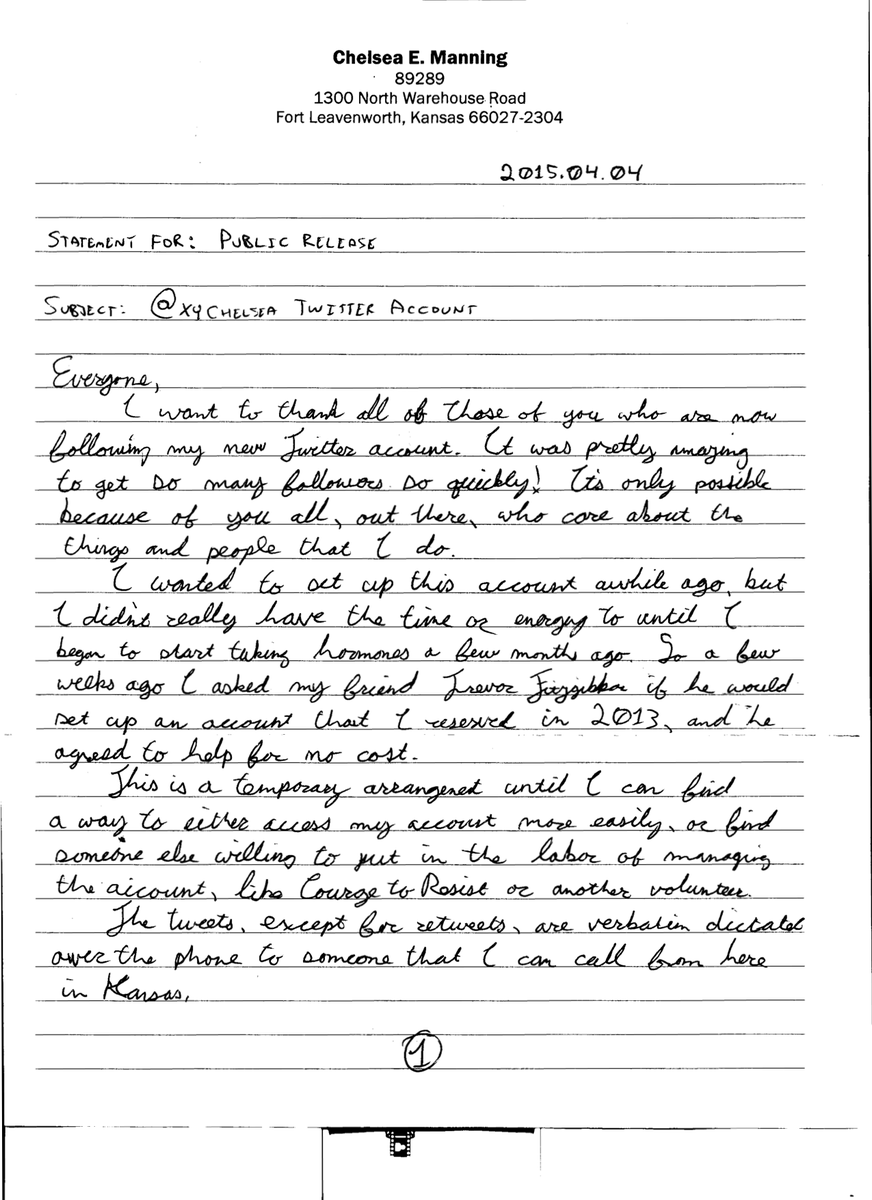 Chelsea E. Manning
89289
1300 North Warehouse Road
Fort Leavenworth, Kansas 66027-2304
2015.04.04
STATEMENT FOR: PUBLIC RELEASE
SUBJECT: @XYCHELSEA TWITTER ACCOUNT
Everyone,
I want to thank all of those of you who are now
following my new Twitter account. It was pretty amazing
to get so many followers so quickly! It's only possible
because of you all, out there, who care about the
things and people that I do.
I wanted to set up this account awhile ago, but
I didn't really have the time or energy to until I
began to start taking hormones a few months ago. So a few
weeks ago I asked my friend Trevor Fitzgibbon if he would
set up an account that I reserved in 2013, and he
agreed to help for no cost.
This is a temporary arrangement until I can find
a way to either access my account more easily, or find
someone else willing to put in the labor of managing
the account, like Courage to Resist or another volunteer.
The tweets, except for retweets, are verbatim dictated
over the phone to someone that I can call from here
in Kansas.
1